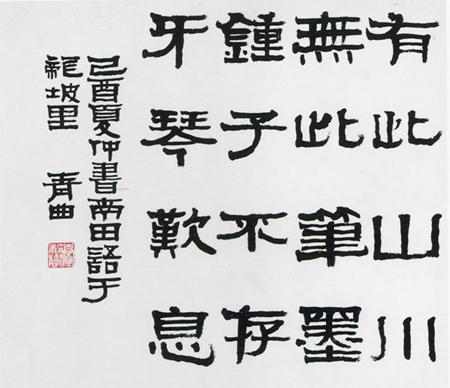 有此山川
無此筆墨
鍾子不存
牙琴歎息
己酉夏仲書南田語于
龍坡里 青曲